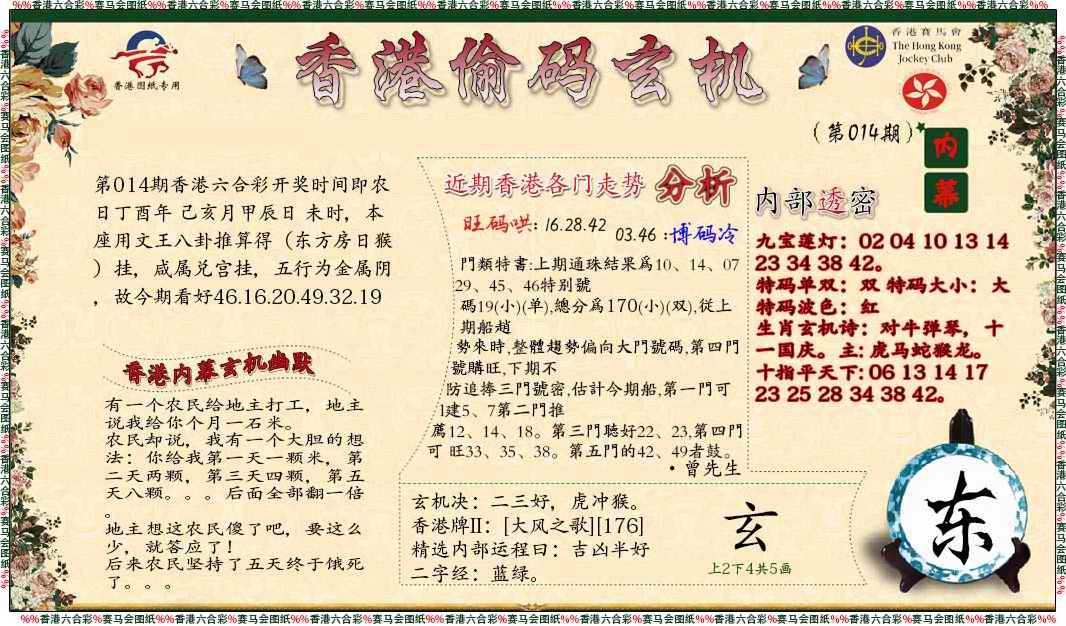 %%香港六合彩%赛马会图纸%%香港六合彩%赛马会图纸%%香港六合彩%赛马会图纸%%香港六合彩%赛马会图纸%%香港六合彩%赛马会图纸%%香港六合彩%赛马会图纸%%香港六合彩%%
香港图纸专用
香港偷码玄机
香港賽馬會
The Hong Kong
Jockey Club
(第014期)
内
幕
第014期香港六合彩开奖时间即农
日丁酉年 己亥月甲辰日 未时，本
座用文王八卦推算得（东方房日猴
）挂，咸属兑宫挂，五行为金属阴
，故今期看好46.16.20.49.32.19
香港内幕玄机幽默
有一个农民给地主打工，地主
说我给你个月一石米。
农民却说，我有一个大胆的想
法：你给我第一天一颗米，第
二天两颗，第三天四颗，第五
天八颗。。。后面全部翻一倍
。
地主想这农民傻了吧，要这么
少，就答应了！
后来农民坚持了五天终于饿死
了。。。
近期香港各门走势 分析
旺码哄: 16.28.42
03.46 :博码冷
門類特書:上期通珠結果爲10、14、07
29、45、46特別號
碼19(小)(单),總分爲170(小)(双),從上
期船趟
勢來時,整體趨勢偏向大門號碼,第四門
號購旺,下期不
防追捧三門號密,估計今期船,第一門可
1建5、7第二門推
薦12、14、18。第三門聽好22、23,第四門
可 旺33、35、38。第五門的42、49者鼓。
·曾先生
玄机决：二三好，虎冲猴。
香港牌II：[大风之歌][176]
精选内部运程曰：吉凶半好
二字经：蓝绿。
玄
上2下4共5画
内部透密
九宝莲灯：02 04 10 13 14
23 34 38 42。
特码单双：双 特码大小：大
特码波色：红
生肖玄机诗：对牛弹琴，十
一国庆。主: 虎马蛇猴龙。
十指平天下: 06 13 14 17
23 25 28 34 38 42。
东
%%香港六合彩%赛马会图纸%%香港六合彩%赛马会图纸%%香港六合彩%赛马会图纸%%香港六合彩%赛马会图纸%%香港六合彩%赛马会图纸%%香港六合彩%赛马会图纸%%香港六合彩%%